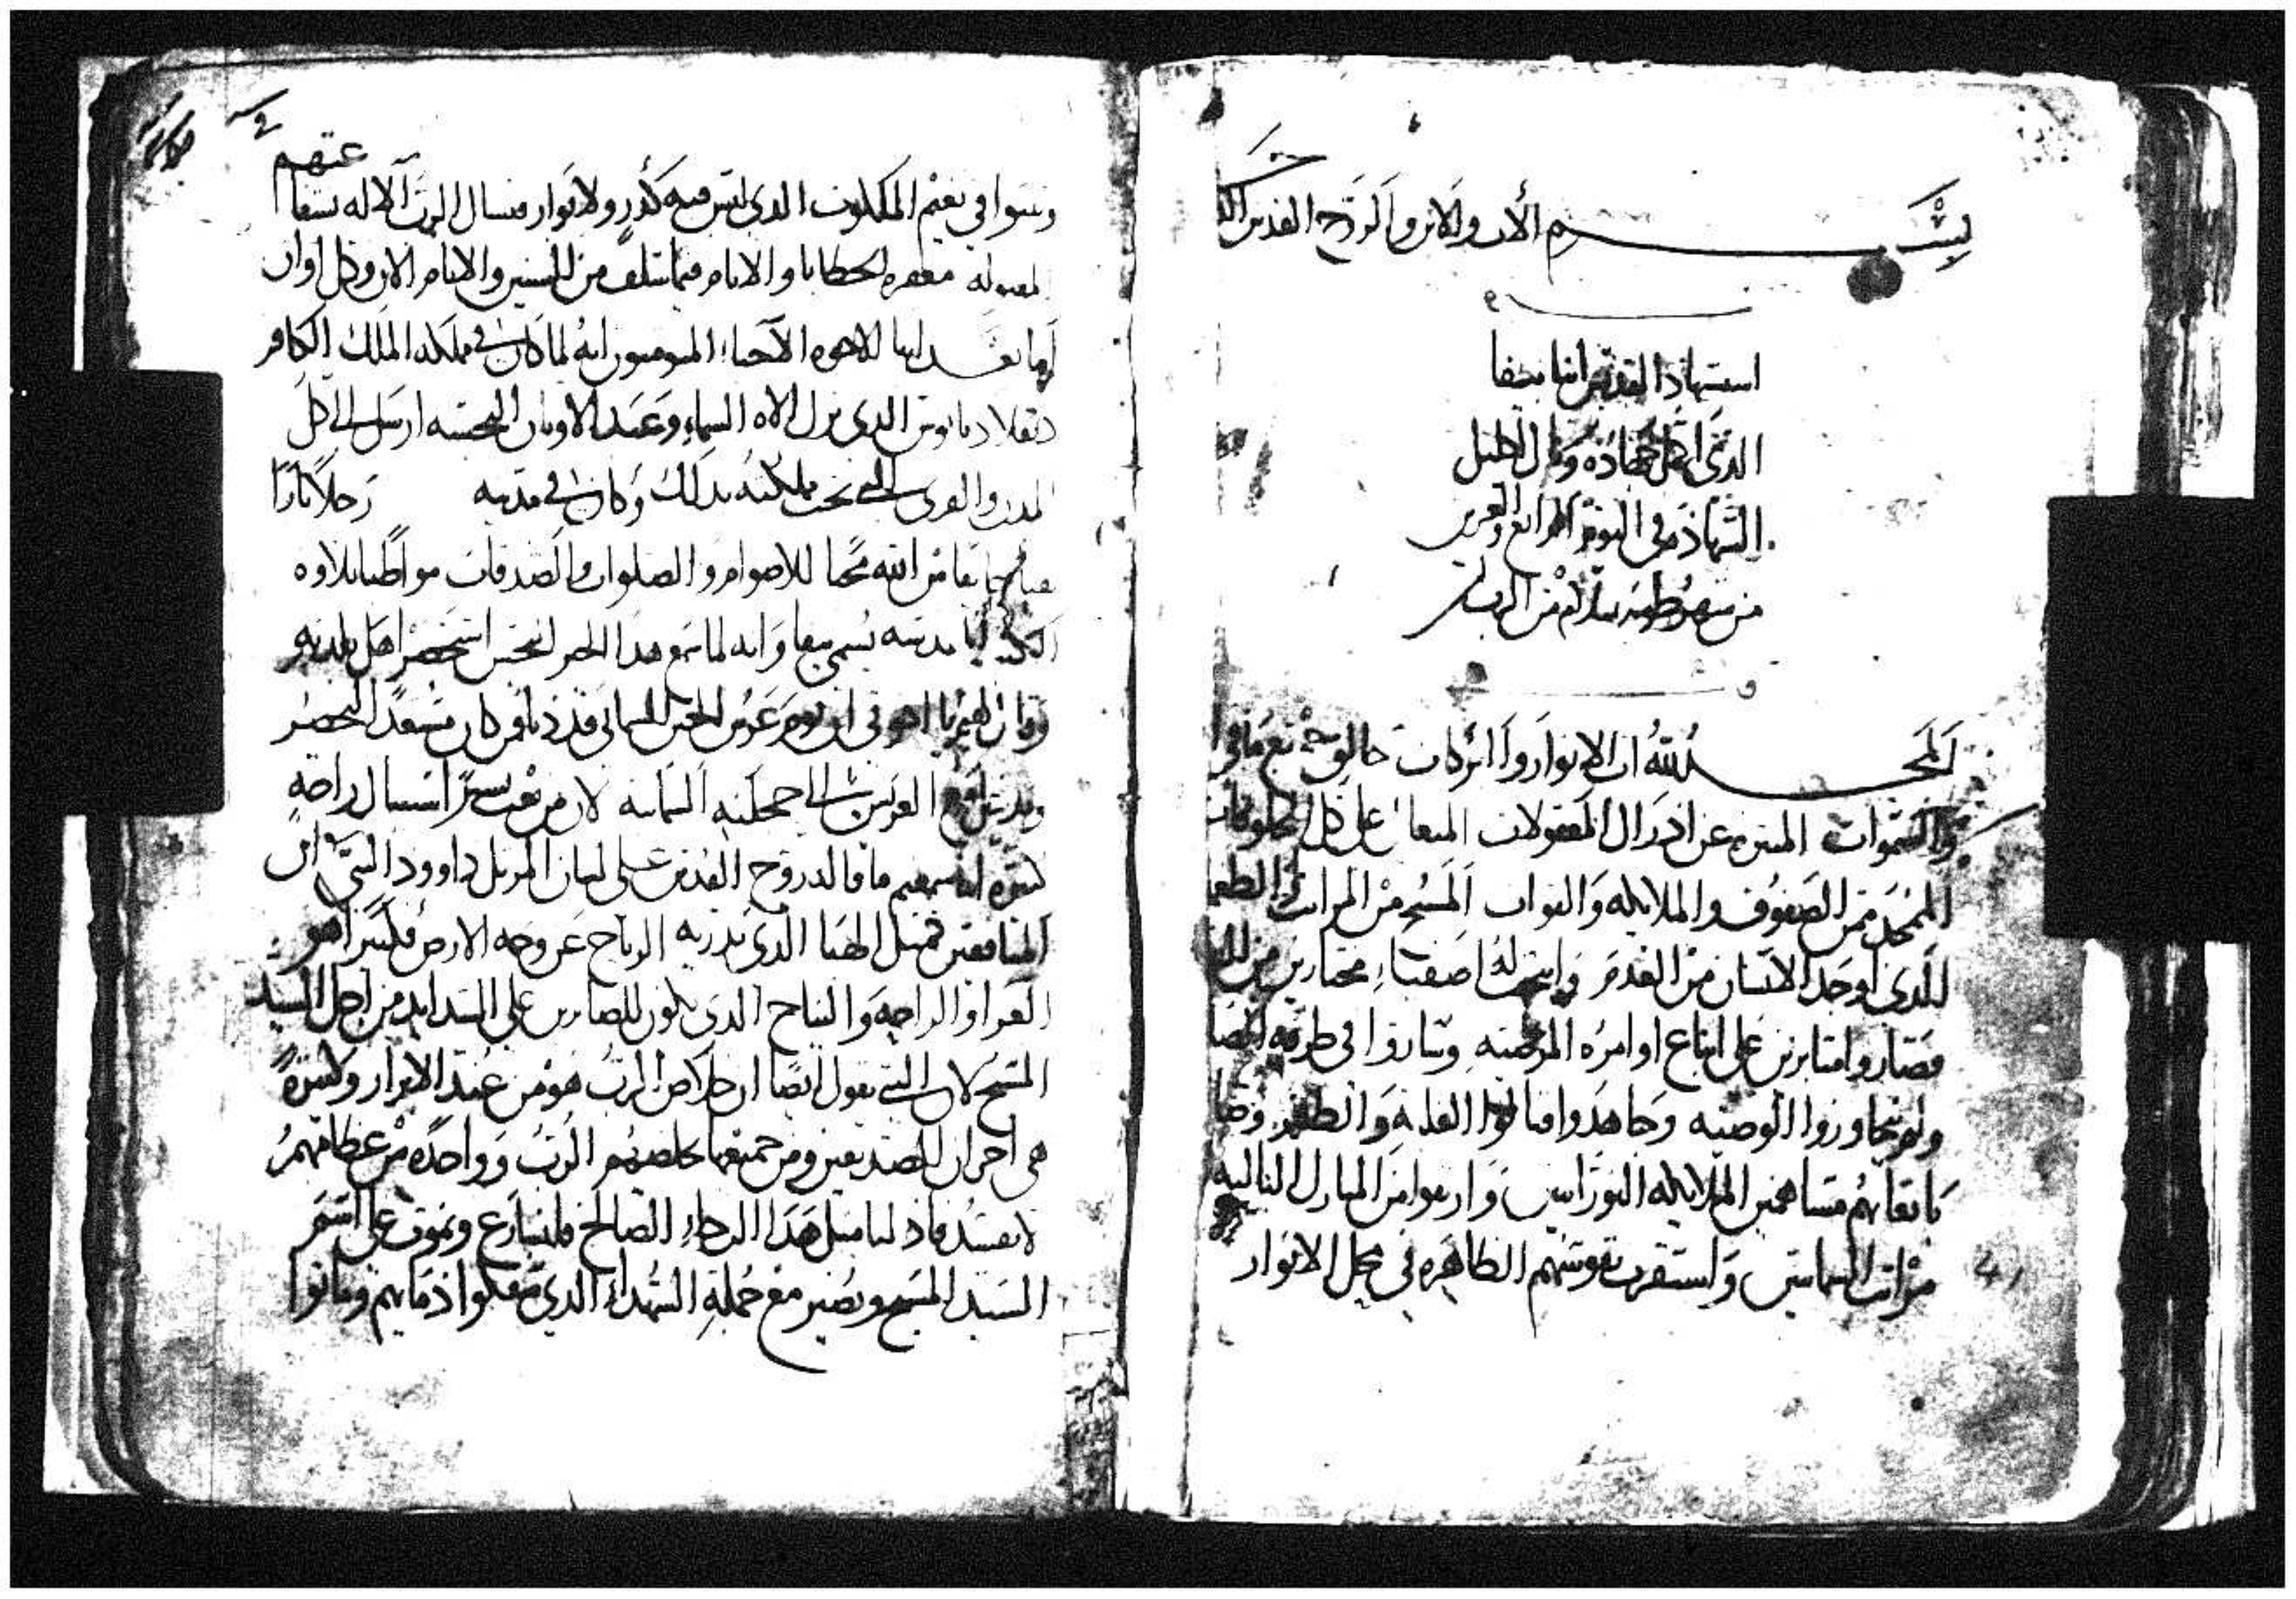 بسم الاب والابن والروح القدس
استشهاد القديس انبا بضفا
الذي اكمل جهاده ونال اكليل
الشهاده في اليوم الرابع والعشرين
من شهر طوبه بسلام من الرب امين
الحمد لله اب الانوار والبركات خالق جميع ما في
والسموات المنزه عن ادراك المعقولات المتعالي على كل المخلوقات
الممجد من الصفوف والملايكه والقوات المسبح من المراتب
الذي اوجد الانسان من العدم وانتخب له اصفياء مختارين من
فصاروا مثابرين على اتباع اوامره المرضيه وساروا في طريقه
ولم يتجاوزوا الوصيه وجاهدوا فنالوا الغلبه والظفر
باتقانهم مساهمين الملايكه النورانيين وارتقوا من المنازل الباليه
مراتب السمائيين واستقرت نفوسهم الطاهره في محل الانوار
عتهم
وتنعموا في نعيم الملكوت الذي ليس فيه كدر ولا بوار فنسال الرب الاله بشفا
المقبوله مغفره الخطايا والاثام فيما سلف من السنين والايام الان وكل اوان
اما بعد ايها الاخوه الاحباء المومنون انه لما كان في مملكه الملك الكافر
دقلاديانوس الذي ترك الاه السماء وعبد الاوثان النجسه ارسل الى كل
المدن والقرى التي تحت مملكته بذلك وكان في مدينه رجلا بارا
خايفا من الله محبا للاصوام والصلوات والصدقات مواظبا لتلاوه
الكتب مدينه يسمى وانه لما سمع هذا الخبر النجس استحضر اهل بلدته
وقال لهم يا اخوتي ان يوم عرس الختن السمائي قد دنا فمن كان مستعدا ليحضر
ويدخل مع العريس الى مملكته السمائيه لان من تعب يسيرا استنال راحه
كثيره اما سمعتم ما قاله روح القدس على لسان المرتل داوود النبي ان
المنافقين كمثل الهبا الذي تذريه الرياح عن وجه الارض فكثيرا هو
العزا والراحه والنياح الذي يكون للصابرين على الشدايد من اجل السيد
المسيح لان النبي يقول ايضا ان خلاص الرب هو من عند الابرار وكثيرة
هي احزان الصديقين ومن جميعها يخلصهم الرب وواحده من عظامهم
لا تفسد فاذ لنا مثل هذا الرجاء الصالح فلنسارع ونموت على اسم
السيد المسيح ونصير مع جملة الشهداء الذي سفكوا دمايهم وماتوا